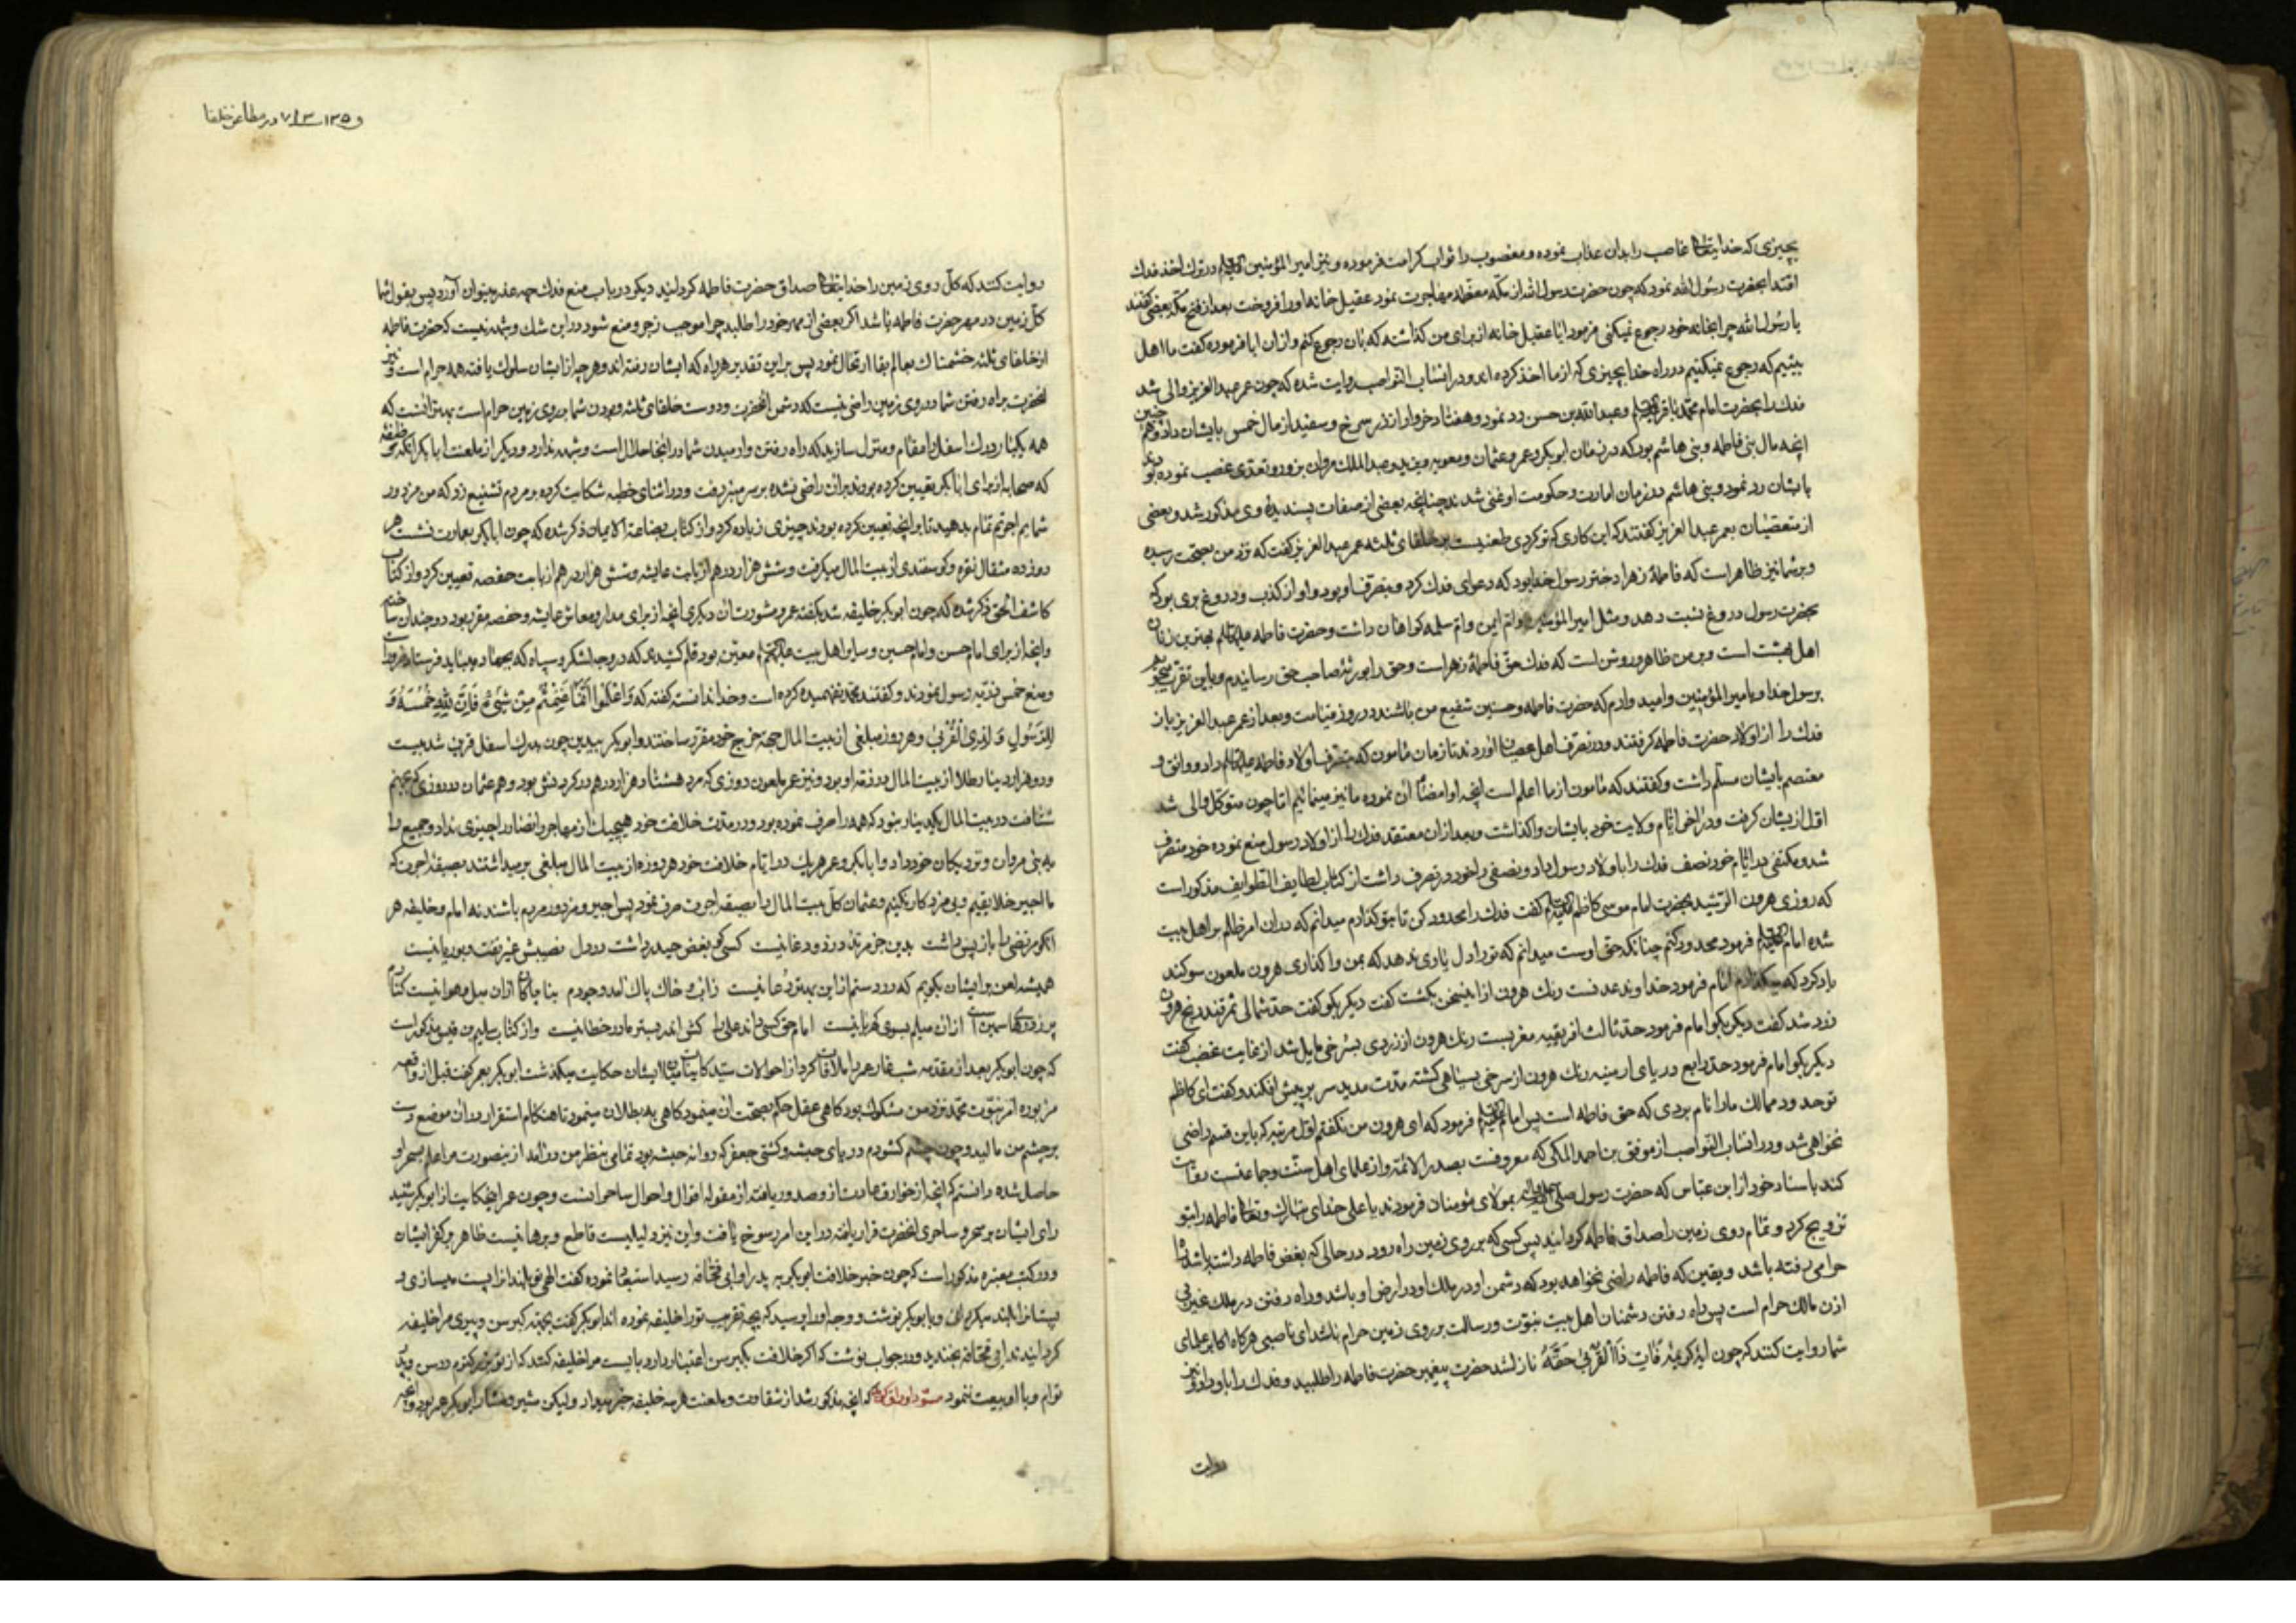 بچیزی که خدایتعالی غاصب را بدان عذاب نموده و مغصوب را ثواب کرامت فرموده و نیز امیر المؤمنین در ترک اخذ فدک
اقتدا بحضرت رسول الله نمود که چون حضرت رسول الله از مکه معظمه مهاجرت نمود عقیل خانه اورا فروخت بعد از فتح مکه بعضی گفتند
یا رسول الله چرا بخانه خود رجوع نمیکنی فرمود ایا عقیل خانه از برای من گذاشته که بان رجوع کنم و ازان ابا فرموده گفت ما اهل
بیتیم که رجوع نمیکنیم در راه خدا بچیزی که از ما اخذ کرده اند و در انساب النواصب روایت شده که چون عمر عبد العزیز والی شد
فدک را بحضرت امام محمد باقر و عبد الله بن حسن رد نمود و هفتاد خروار از زر سرخ و سفید از مال خمس بایشان داد و هم چنین
انچه مال بنی فاطمه و بنی هاشم بود که در زمان ابو بکر و عمر و عثمان و معویه و یزید و عبد الملک مروان بزور و تعدی غصب نموده بودند
بایشان رد نمود و بنی هاشم در زمان امارت و حکومت او غنی شدند چنانچه بعضی از صفات پسندیده وی مذکور شد و بعضی
از متعصبان بعمر عبد العزیز گفتند که این کاری که تو کردی طعنیست بر خلفای ثلثه عمر عبد العزیز گفت که نزد من بصحت رسیده
و بر شما نیز ظاهر است که فاطمه زهرا دختر رسول خدا بود که دعوای فدک کرد و بتصرف او بود و او از کذب و دروغ بری بود که
بحضرت رسول دروغ نسبت دهد و مثل امیر المؤمنین و ام ایمن و ام سلمه گواهان داشت و حضرت فاطمه بهترین زنان
اهل بهشت است و بر من ظاهر و روشن است که فدک حق فاطمه زهراست و حق را بورثه صاحب حق رسانیدم و باین تقرب میجویم
برسول خدا و بامیر المؤمنین و امیدوارم که حضرت فاطمه و حسنین شفیع من باشند در روز قیامت و بعد از عمر عبد العزیز باز
فدک را از اولاد حضرت فاطمه گرفتند و در تصرف اهل عصیان اوردند تا زمان مامون که بتصرف اولاد فاطمه داد و واثق و
معتصم بایشان مسلم داشت و گفتند که مامون از ما اعلم است انچه او امضای ان نموده ما نیز مینمائیم اما چون متوکل والی شد
اول ازیشان گرفت و در اخر ایام ولایت خود بایشان واگذاشت و بعد ازان معتضد فدک را از اولاد رسول منع نموده خود متصرف
شد و مکتفی در ایام خود نصف فدک را باولاد رسول داد و نصفی را خود در تصرف داشت از کتاب لطایف الطوایف مذکور است
که روزی هرون الرشید بحضرت امام موسی کاظم گفت فدک را محدود کن تا بتو گذارم میدانم که دران امر ظلم بر اهل بیت
شده امام فرمود محدود کنم چنانکه حق اوست میدانم که تو را دل یاوری ندهد که بمن واگذاری هرون ملعون سوگند
یاد کرد که میگذارم امام فرمود حد اول عدنست رنک هرون ازین سخن بگشت گفت دیگر بگو گفت حد ثانی سمرقند رنج هرون
زرد شد گفت دیگر بگو امام فرمود حد ثالث افریقیه مغربست رنک هرون از زردی بسرخی مایل شد از غایت غضب گفت
دیگر بگو امام فرمود حد رابع دریای ارمینیه رنک هرون از سرخی بسیاهی گشته مدت مدید سر بر پیش افکند و گفت ای کاظم
تو حدود ممالک ما را نام بردی که حق فاطمه است پس امام فرمود که ای هرون من نگفتم اول مرتبه که باین قسم راضی
نخواهی شد و در انساب النواصب از موفق بن احمد المکی که معروفست بصدر الائمه و از علمای اهل سنت و جماعتست روایت
کند باسناد خود از ابن عباس که حضرت رسول بمولای مؤمنان فرمودند یا علی خدای تبارک و تعالی فاطمه را بتو
تزویج کرد و تمام روی زمین را صداق فاطمه گردانید پس کسی که بر روی زمین راه رود در حالی که بغض فاطمه داشته باشد
حرامی رفته باشد و یقین که فاطمه راضی نخواهد بود که دشمن او در ملک او و در ارض او باشد و راه رفتن در ملک غیر بی
اذن مالک حرام است پس راه رفتن دشمنان اهل بیت نبوت و رسالت بر روی زمین حرام باشد ای ناصبی هرگاه اکابر علمای
شما روایت کنند که چون ایه کریمه فَاتِ ذَا الْقُرْبیٰ حَقَّهُ نازل شد حضرت پیغمبر حضرت فاطمه را طلبید و فدک را باو داد و نیز
روایت
در مطاعن خلفا
روایت کنند که کل روی زمین را خدایتعالی صداق حضرت فاطمه گردانید دیگر در باب منع فدک چه عذر میتوان آورد پس بقول شما
کل زمین در مهر حضرت فاطمه باشد اگر بعضی از مهر خود را طلبد چرا موجب زجر و منع شود در این شک و شبهه نیست که حضرت فاطمه
از خلفای ثلثه خشمناک بعالم بقا ارتحال نمود پس براین تقدیر هر راه که ایشان رفته اند و هرچه از ایشان سلوک یافته همه حرام است و نیز
انحضرت براه رفتن شما در روی زمین راضی نیست که دشمن انحضرت و دوست خلفای ثلثه و بودن شما بر روی زمین حرام است بهتر انست که
همه یکبار درک اسفل را مقام و منزل سازید که راه رفتن و ارمیدن شما در انجا حلال است و شبهه ندارد و دیگر از ملعنت ابا بکر انکه
که صحابه از برای ابا بکر تعیین کرده بودند بران راضی نشده بر سر منبر رفت و در اثنای خطبه شکایت کرده بر مردم تشنیع زد که من مزدور
شمایم اجرتم تمام بدهید تا بر انچه تعیین کرده بودند چیزی زیاده کرد و از کتاب بضاعة الایمان ذکر شده که چون ابا بکر نشست هر
روز ده مثقال نقره و گوسفندی از بیت المال میگرفت و شش هزار درهم از بابت عایشه و شش هزار درهم از بابت حفصه تعیین کرد و از کتاب
کاشف الحق ذکر شده که چون ابو بکر خلیفه شد بگفته عمر و مشورت ان دیگری انچه از برای مدار و معاش عایشه و حفصه مقرر بود دوچندان ساخته
وانچه از برای امام حسن و امام حسین و سایر اهل بیت معین بود قلم کشیدی که در وجه لشکر و سپاه که بجهاد
و منع خمس ذریه رسول نمودند و گفتند محمد نفهمیده کرده است و خدا ندانسته گفته که وَاعْلَمُوا اَنَّمٰا غَنِمْتُمْ مِنْ شَیْءٍ فَاَنَّ لِلّٰهِ خُمُسَهُ وَ
لِلرَّسُولِ وَ لِذِی الْقُرْبیٰ و هر روز مبلغی از بیت المال جهة خرج خود مقرر ساختند و ابو بکر بیدین چون بدرک اسفل قرین شد بیست
و دو هزار دینار طلا از بیت المال در ذمه او بود و نیز عمر ملعون روزی که مرد هشتاد هزار درهم در گردنش بود و هم عثمان در روزی که بجهنم
شتافت در بیت المال یکدینار نبود که همه را صرف نموده بود و در مدت خلافت خود هیچیک از مهاجر و انصار را چیزی نداد و جمیع را
به بنی مروان و نزدیکان خود داد و ابا بکر و عمر هر یک در ایام خلافت خود هر روزه از بیت المال مبلغی بر میداشتند بصیغه اجرت که
ما اجیر خلایقیم و بی مزد کار نکنیم و عثمان کل بیت المال را بصیغه اجرت صرف نمود پس اجیر و مزدور مردم باشند نه امام و خلیفه هر
انکو مرتضی را باز پس داشت بدین جز مرتد و دغا نیست کسی کو بغض حیدر داشت در دل نصیبش غیر نفت و بوریا نیست
همیشه لعن بر ایشان بگویم که در دستم ازین بهتر دعا نیست
امام حق کسی داند علی را کش اندر بستر مادر خطا نیست و از کتاب سلیم بن قیس مذکور است
که چون ابو بکر بعد از مقدمه شب غار عمر را ملاقات کرد از احوالات سید کاینات با ایشان حکایت میگذشت ابو بکر بعمر گفت قبل از قصه
مزبوره امر نبوت محمد نزد من مشکوک بود گاهی عقل حکم بصحت ان مینمود گاهی به بطلان مینمود تا هنگام استقرار دران موضع دست
بر چشم من مالید و چون چشم گشودم دریای حبشه و کشتی جعفر که روانه حبشه بود تمامی بنظر من در امد ازین صورت مرا علم بسحر او
حاصل شده دانستم که انچه از خوارق عادت از و صدور یافته از مقوله اقوال و احوال ساحرانست و چون عمر این حکایت از ابو بکر شنید
رای ایشان بر سحر و ساحری انحضرت قرار یافته در این امر رسوخ یافت و این نیز دلیلیست قاطع و برهانیست ظاهر بر کفر ایشان
و در کتب معتبره مذکور است که چون خبر خلافت ابو بکر به پدر او ابی قحافه رسید استبعاد نموده گفت الهی تو بلند را پست میسازی و
پستانرا بلند میگردانی و بابو بکر نوشت و وجه اورا پرسید که بچه تقریب تو را خلیفه نموده اند ابو بکر گفت بجهة کبر سن و پیری مرا خلیفه
گردانیدند ابی قحافه بخندید و در جواب نوشت که اگر خلافت بکبر سن اعتبار دارد بایست مرا خلیفه کنند که از تو بزرگترم در سن و پدر
توام و با او بیعت ننمود مسود اوراق گوید که انچه مذکور شد از شقاوت و ملعنت هر سه خلیفه خبر میدارد ولیکن شیر و مستشار ابو بکر عمر بود و